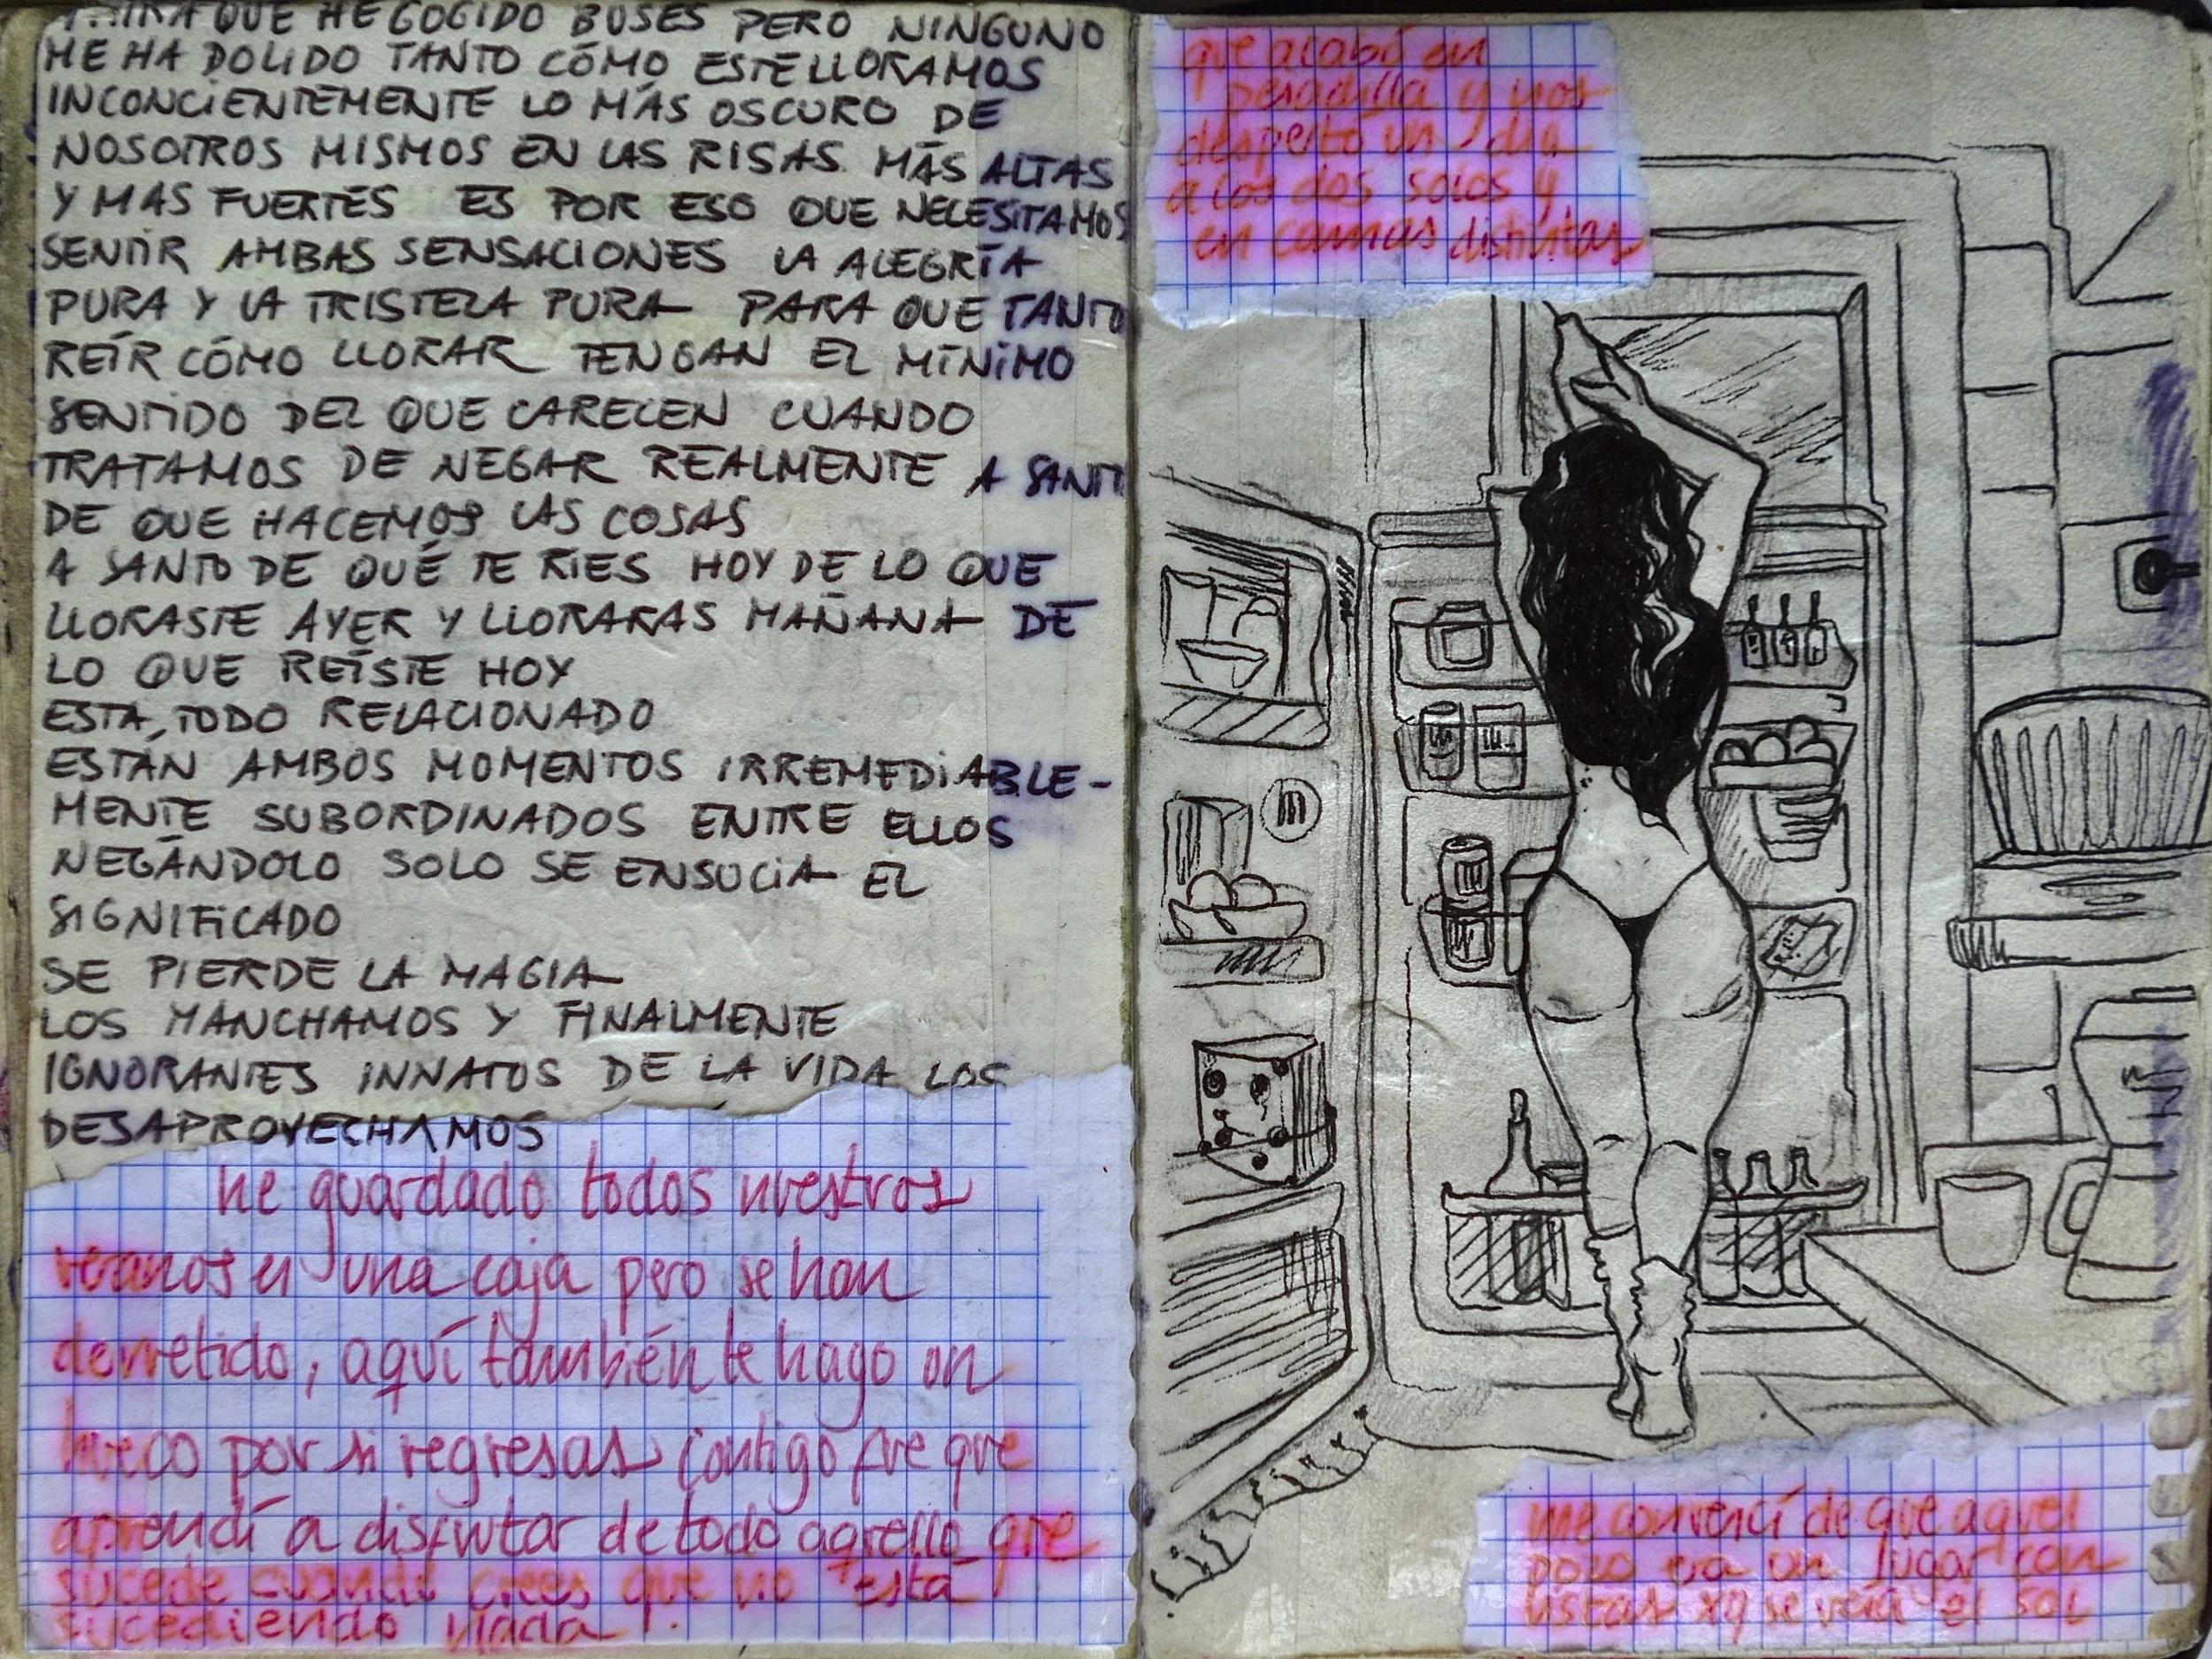 MIRA QUE HE COGIDO BUSES PERO NINGUNO
ME HA DOLIDO TANTO CÓMO ESTE LLORAMOS
INCONCIENTEMENTE LO MÁS OSCURO DE
NOSOTROS MISMOS EN LAS RISAS MÁS ALTAS
Y MAS FUERTES ES POR ESO QUE NECESITAMOS
SENTIR AMBAS SENSACIONES LA ALEGRÍA
PURA Y LA TRISTEZA PURA PARA QUE TANTO
REÍR CÓMO LLORAR TENGAN EL MÍNIMO
SENTIDO DEL QUE CARECEN CUANDO
TRATAMOS DE NEGAR REALMENTE A SANTO
DE QUE HACEMOS LAS COSAS
A SANTO DE QUÉ TE RIES HOY DE LO QUE
LLORASTE AYER Y LLORARAS MAÑANA DE
LO QUE REÍSTE HOY
ESTA TODO RELACIONADO
ESTÁN AMBOS MOMENTOS IRREMEDIABLE-
MENTE SUBORDINADOS ENTRE ELLOS
NEGÁNDOLO SOLO SE ENSUCIA EL
SIGNIFICADO
SE PIERDE LA MAGIA
LOS MANCHAMOS Y FINALMENTE
IGNORANTES INNATOS DE LA VIDA LOS
DESAPROVECHAMOS
he guardado todos nuestros
veranos en una caja pero se han
derretido, aquí también te hago un
hueco por si regresas contigo fue que
aprendí a disfrutar de todo aquello que
sucede cuando crees que no está
sucediendo nada.
que acabó en
pesadilla y nos
despertó un día
a los dos solos y
en camas distintas
me convencí de que aquel
pozo era un lugar con
vistas xq se veía el sol